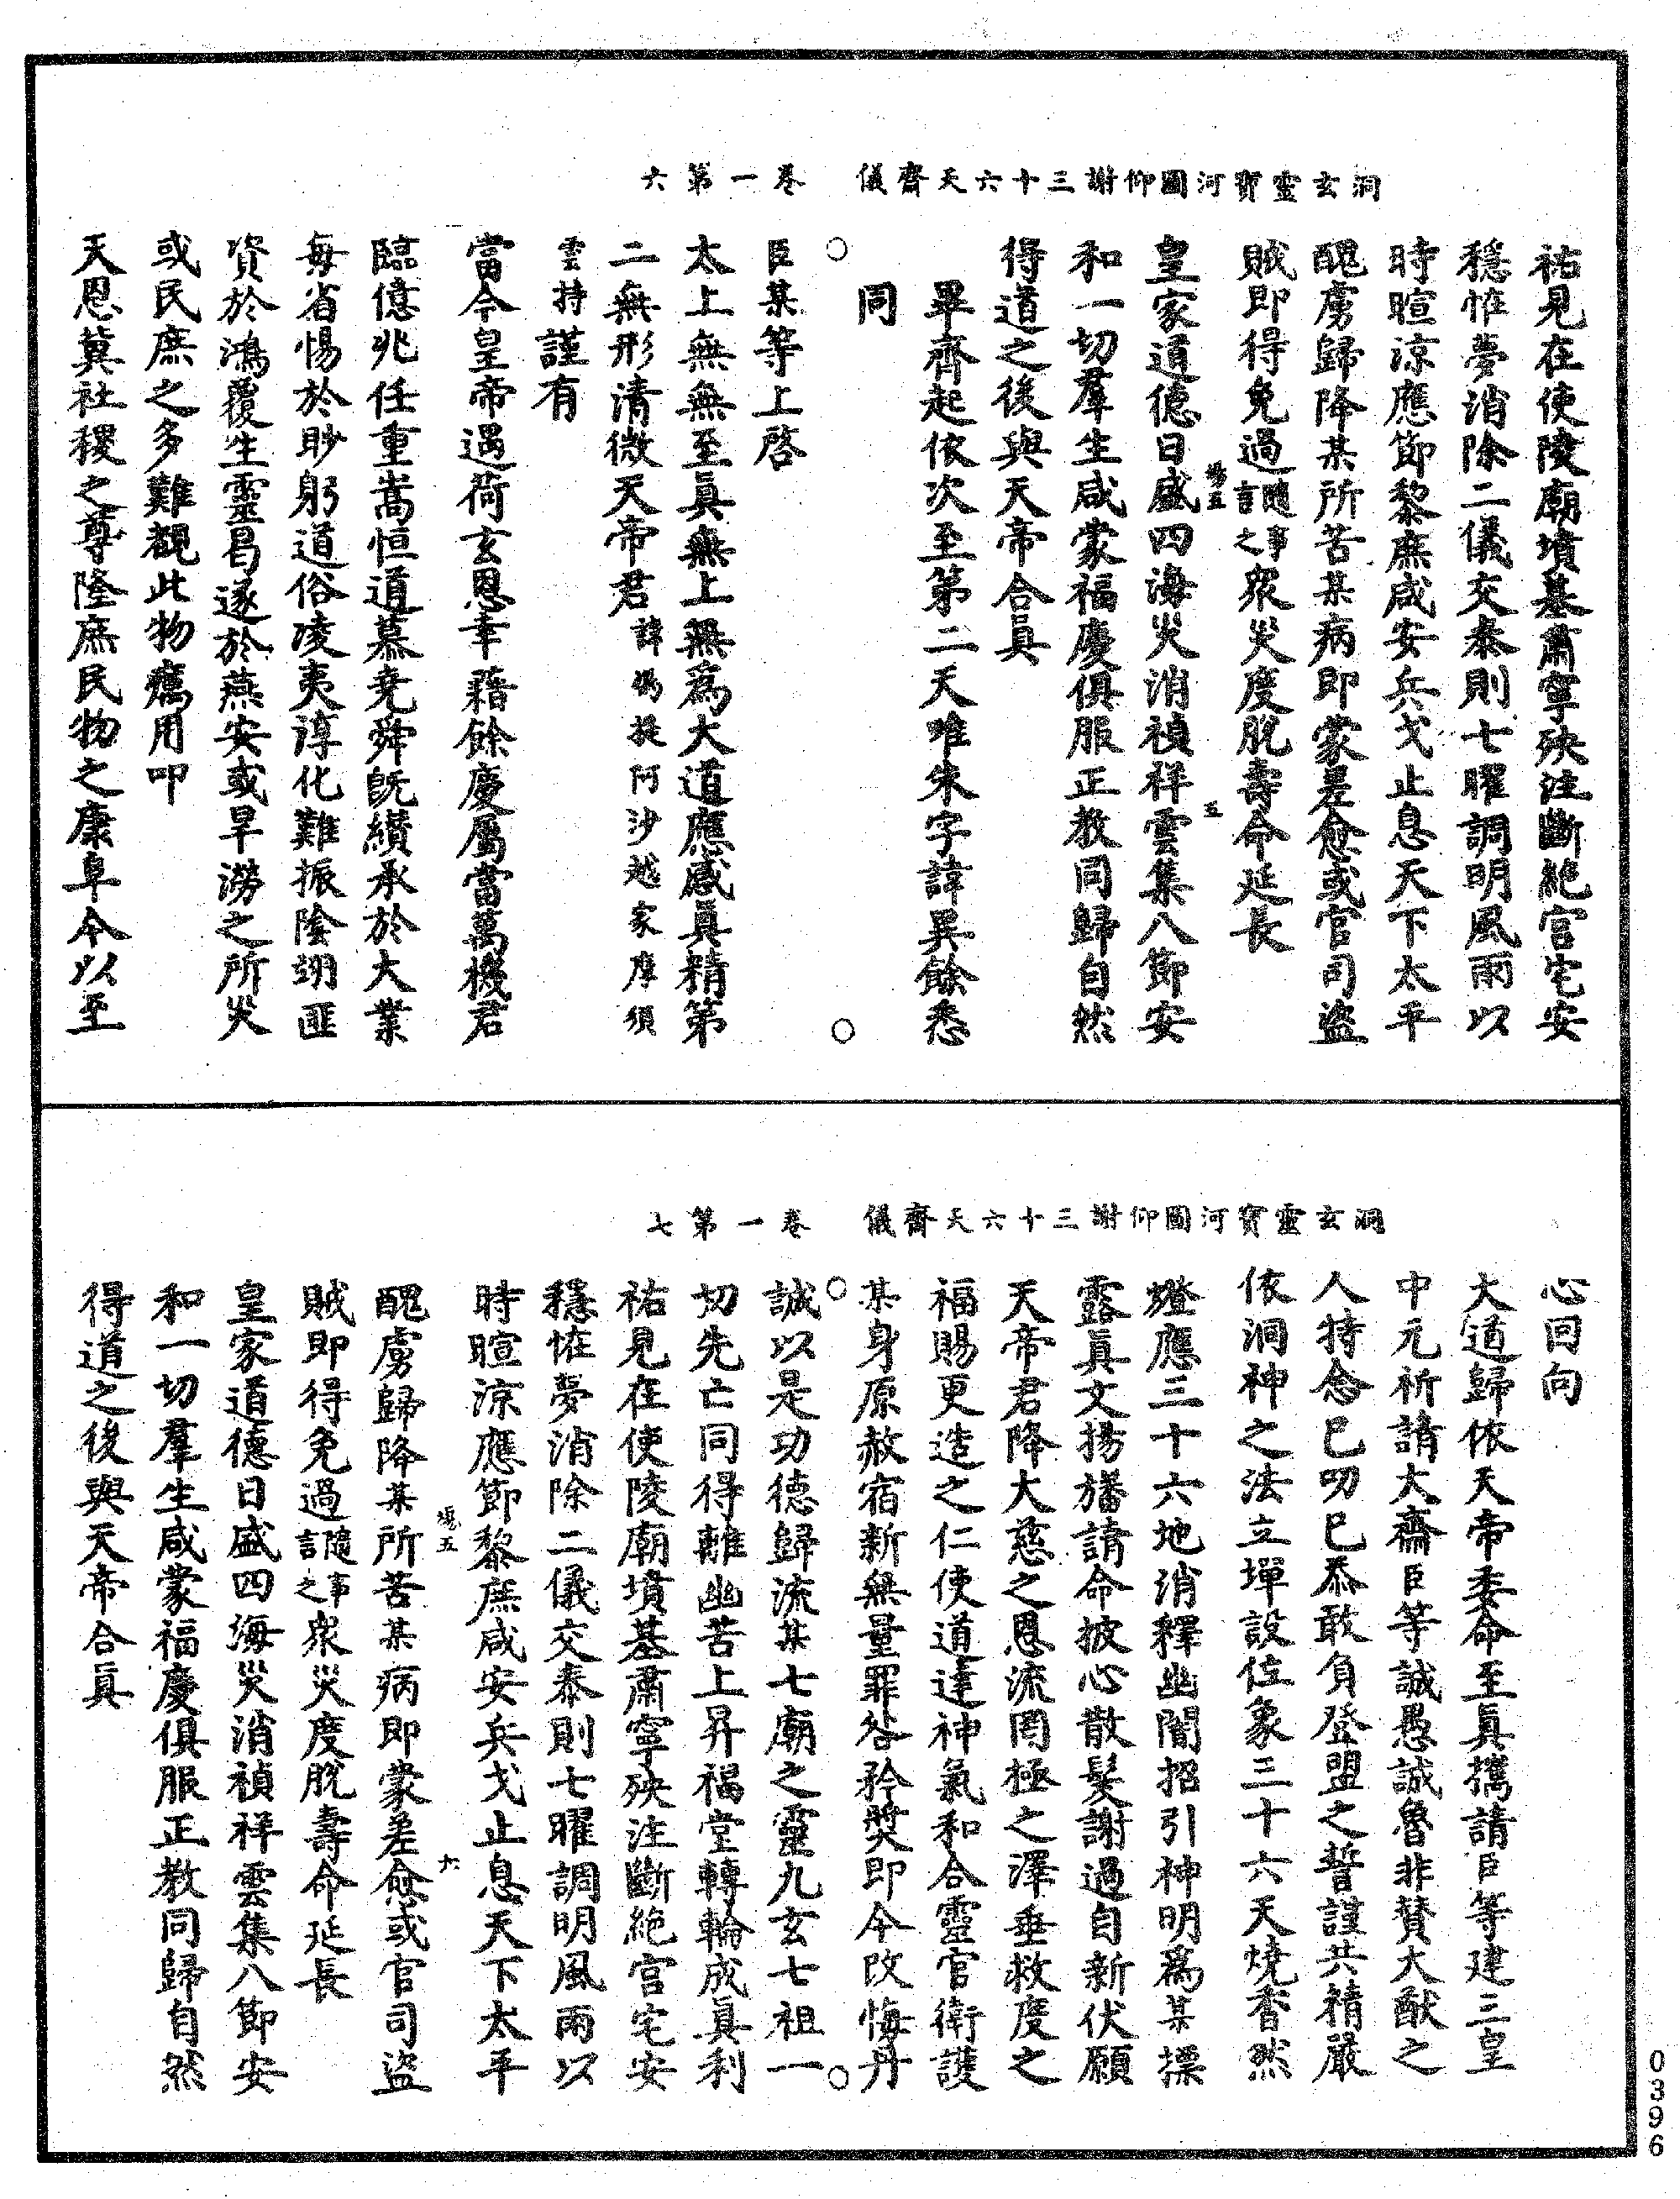 洞玄靈寶河圖仰謝三十六天齋儀　卷一第六
祐見在使陵廟墳墓肅寧殃注斷絕宮宅安
穩恠夢消除二儀交泰則七曜調明風雨以
時暄涼應節黎庶咸安兵戈止息天下太平
醜虜歸降某所苦某病即蒙差愈或官司盜
賊即得免過隨事言之眾災度脫壽命延長
皇家道德日盛四海災消禎祥雲集八節安
和一切羣生咸蒙福慶俱服正教同歸自然
得道之後與天帝合真
畢齊起依次至第二天唯朱字諱異餘悉
同
臣某等上啓
太上無無至真無上無為大道應感真精第
二無形清微天帝君諱 提阿沙越家摩須
雲持謹有
當今皇帝遇荷玄恩幸藉餘慶屬當萬機君
臨億兆任重嵩恒道慕堯舜旣纘承於大業
每省惕於眇躬道俗凌夷淳化難振陰翊匪
資於鴻覆生靈曷遂於燕安或旱澇之所災
或民庶之多難覩此物癘用叩
天恩冀社稷之尊隆庶民物之康阜今以至
洞玄靈寶河圖仰謝三十六天齋儀　卷一第七
心回向
大道歸依天帝委命至真攜請臣等建三皇
中元祈請大齋臣等誠愚誠魯非贊大猷之
人特念巳叨巳忝敢負登盟之誓謹共精嚴
依洞神之法立墠設位象三十六天燒香然
燈應三十六地消釋幽闇招引神明爲某摽
露真文揚旛請命披心散髮謝過自新伏願
天帝君降大慈之恩流罔極之澤垂救度之
福賜更造之仁使道達神氣和合靈官衛護
某身原赦宿新無量罪咎矜獎即今改悔丹
誠以是功德歸流某七廟之靈九玄七祖一
切先亡同得離幽苦上昇福堂轉輪成真利
祐見在使陵廟墳墓肅寧殃注斷絕宮宅安
穩恠夢消除二儀交泰則七曜調明風雨以
時暄涼應節黎庶咸安兵戈止息天下太平
醜虜歸降某所苦某病即蒙差愈或官司盜
賊即得免過隨事言之眾災度脫壽命延長
皇家道德日盛四海災消禎祥雲集八節安
和一切羣生咸蒙福慶俱服正教同歸自然
得道之後與天帝合真
0396